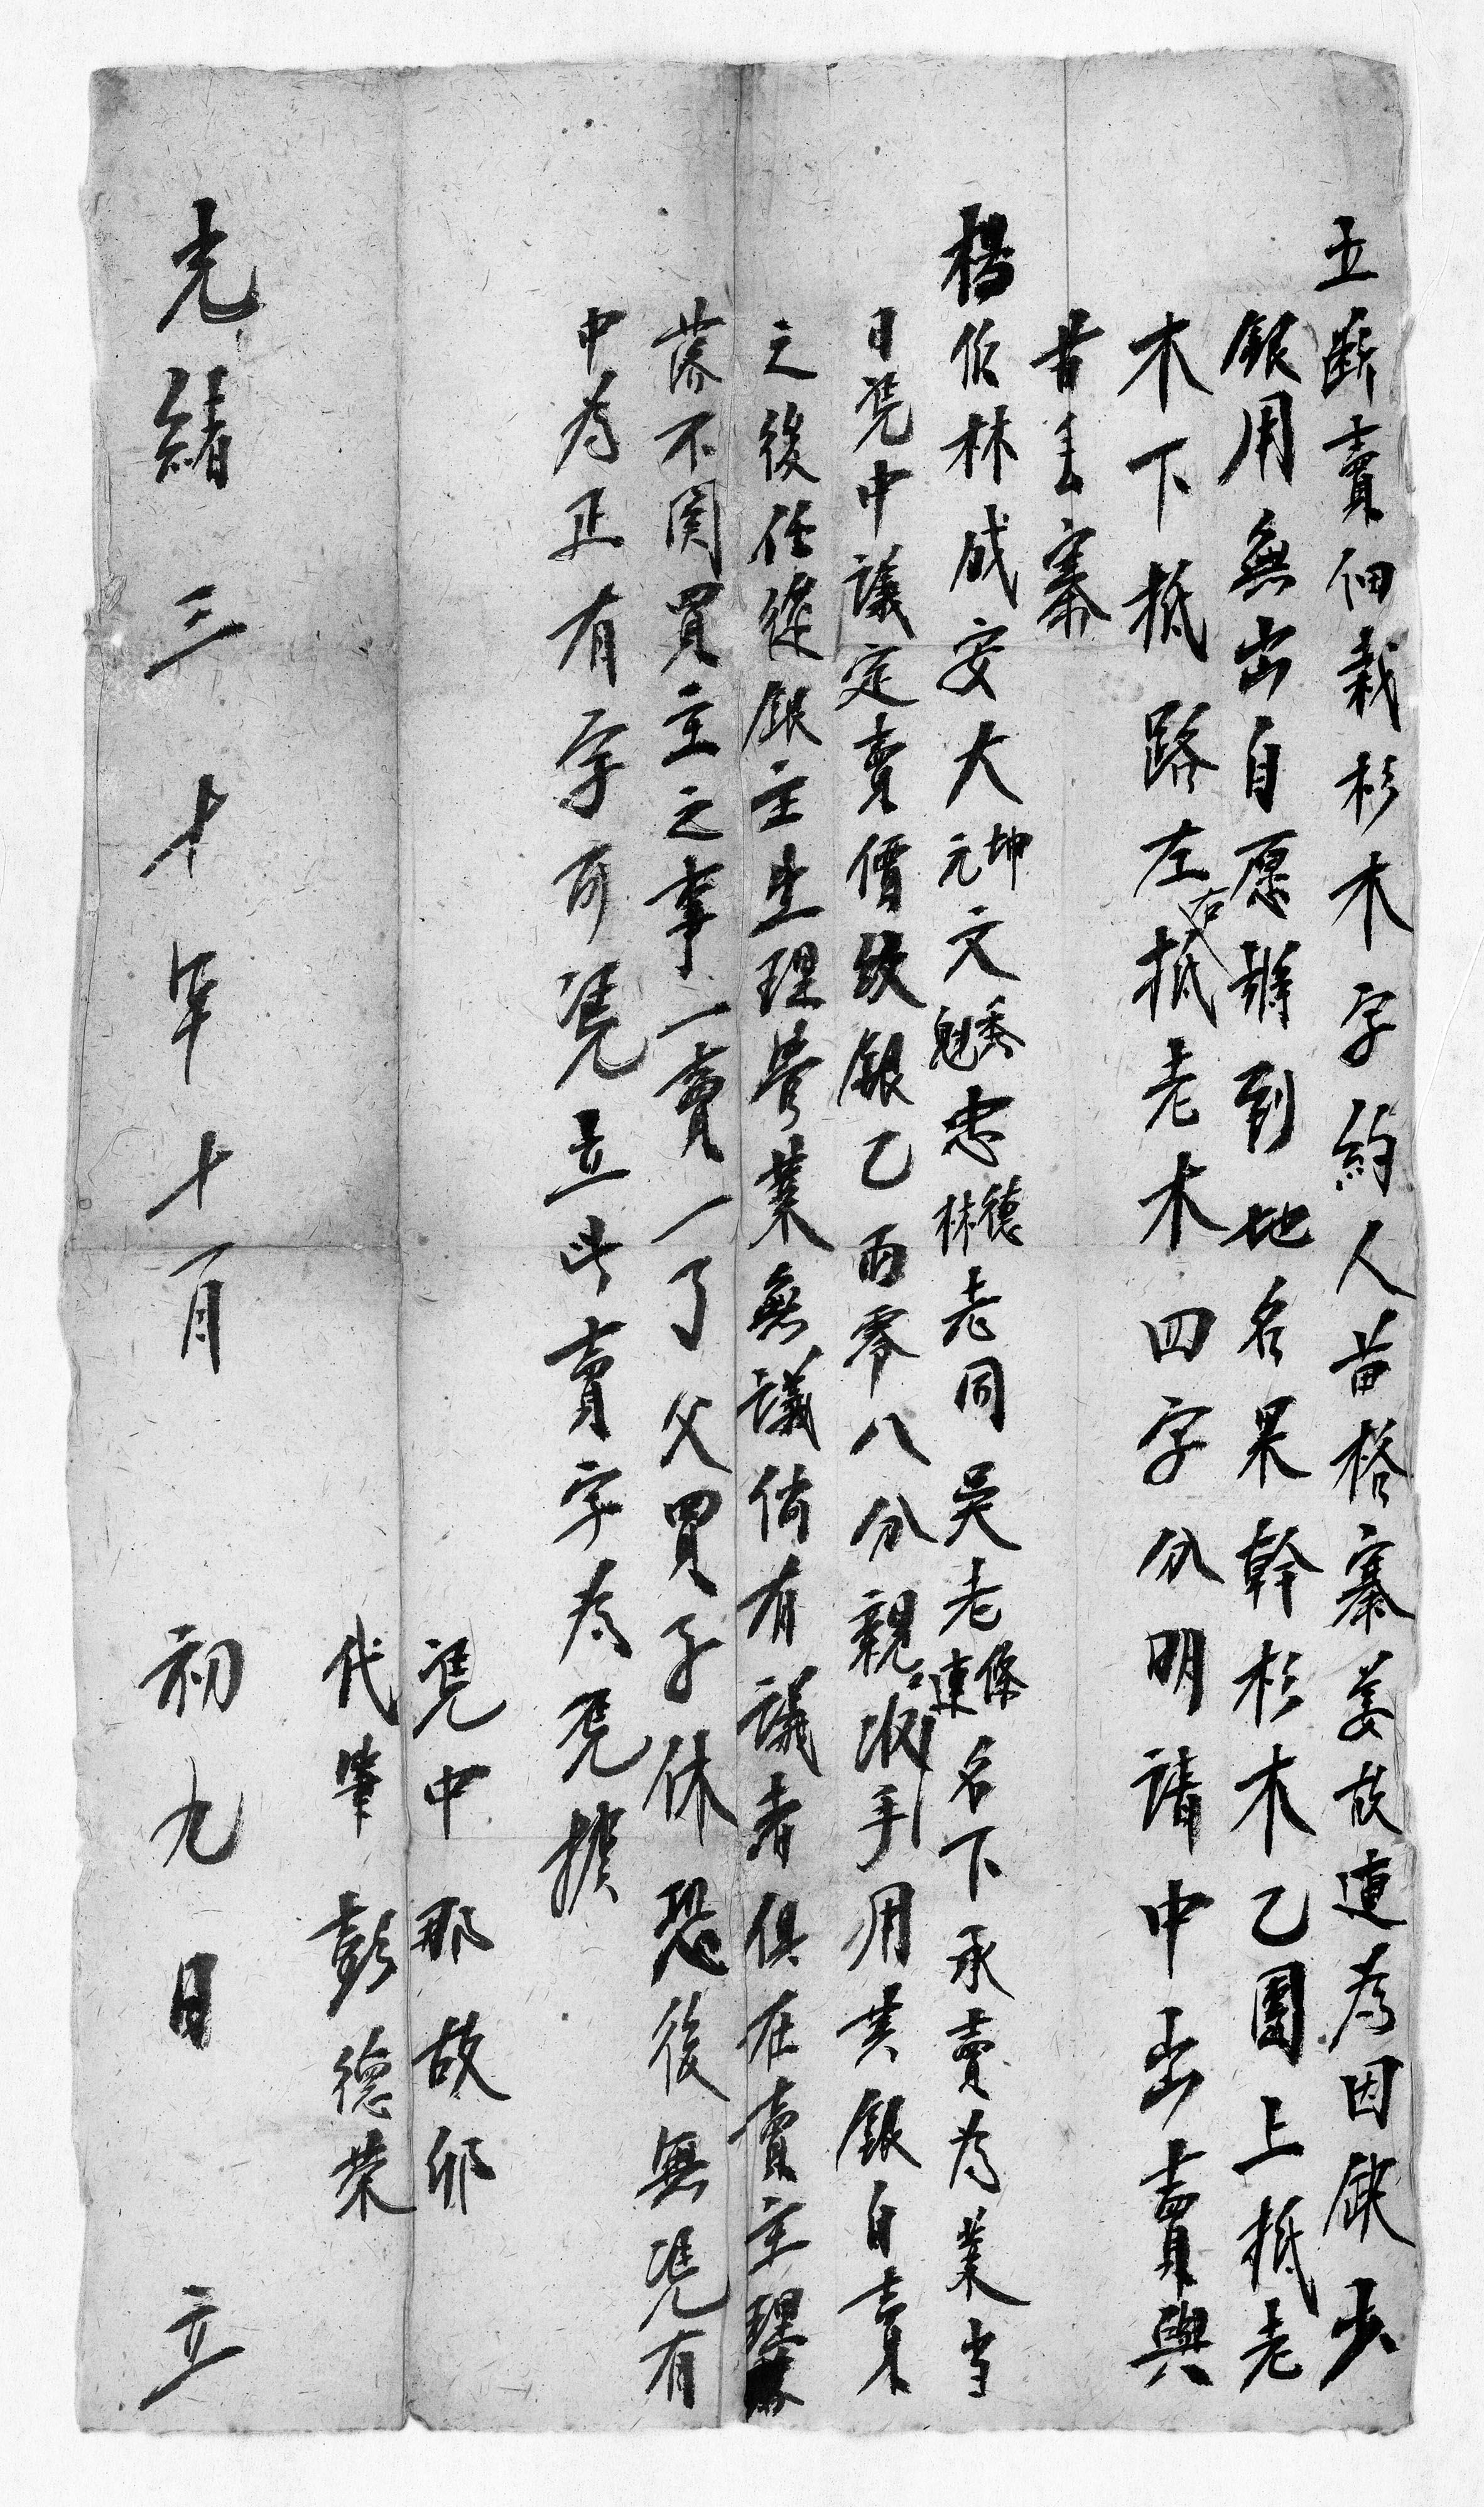 立斷賣佃栽杉木字約人苗格寨姜故連為因缺少
銀用無出自愿將到地名果幹杉木乙團上抵老
木下抵路左右抵老木四字分明請中出賣與
苦寨
楊伯林成安大坤元文秀魁忠德林老同吳老條連名下承賣為業当
日凭中議定賣價紋銀乙両零八分親收手用其銀自賣
之後任從銀主生理管業無議倘有議者俱在賣主理
落不関買主之事一賣一了父買子休恐後無凴有
中為正有字可凴立此賣字為凭攄
凴中那故卯
代筆彭德荣
光緒三十年十一月初九日立